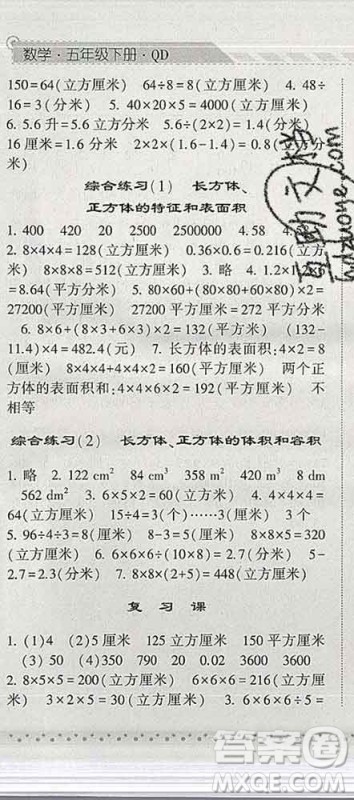 数学·五年级下册·QD
150=64(立方厘米) 64÷8=8(立方厘米) 4. 48÷
16=3(分米) 5. 40×20×5=4000(立方厘米)
6. 5.6升=5.6立方分米 5.6÷(2×2)=1.4(分米)
16厘米=1.6分米 2×2×(1.6-1.4)=0.8(立方分
米)
综合练习(1) 长方体、
正方体的特征和表面积
1. 400 420 20 2500 2500000 4.58 4.
2. 8×4×4=128(立方厘米) 0.36×0.6=0.216(立方
米) 8×8×8=512(立方厘米) 3. 略 4. 1.2×1
=8.64(平方分米) 5. 80×60+(80×80+80×60)×2=
27200(平方厘米) 27200平方厘米=272平方分米
6. 8×6+(8×3+6×3)×2=132(平方米) (132-
11.4)×4=482.4(元) 7. 长方体的表面积:4×2=8
(厘米) 8×4×4+4×4×2=160(平方厘米) 两个正
方体的表面积和:4×4×6×2=192(平方厘米) 不
相等
综合练习(2) 长方体、正方体的体积和容积
1. 略 2. 122 cm² 84 cm³ 358 m² 420 m³ 8 dm
562 dm² 3. 6×5×2=60(立方厘米) 4. 4×4×4=
64(立方厘米) 15÷4=3(个)……3(厘米) 3个
5. 96÷4÷3=8(厘米) 8-3=5(厘米) 8×8×5=320
(立方厘米) 6. 6×6×6÷(10×8)=2.7(分米) 5-
2.7=2.3(分米) 7. 8×8×(2+5)=448(立方厘米)
复习课
1. (1)4 (2)5厘米 125立方厘米 150平方厘米
(3)50 (4)350 790 20 0.02 3600 3600
2. 8×5×5=200(立方厘米) 6×6×6=216(立方厘
米) 3×2×5=30(立方厘米) 3. 6×6×6÷5=
互助文学
hdzuone.com
答案圈
MXQE.COM